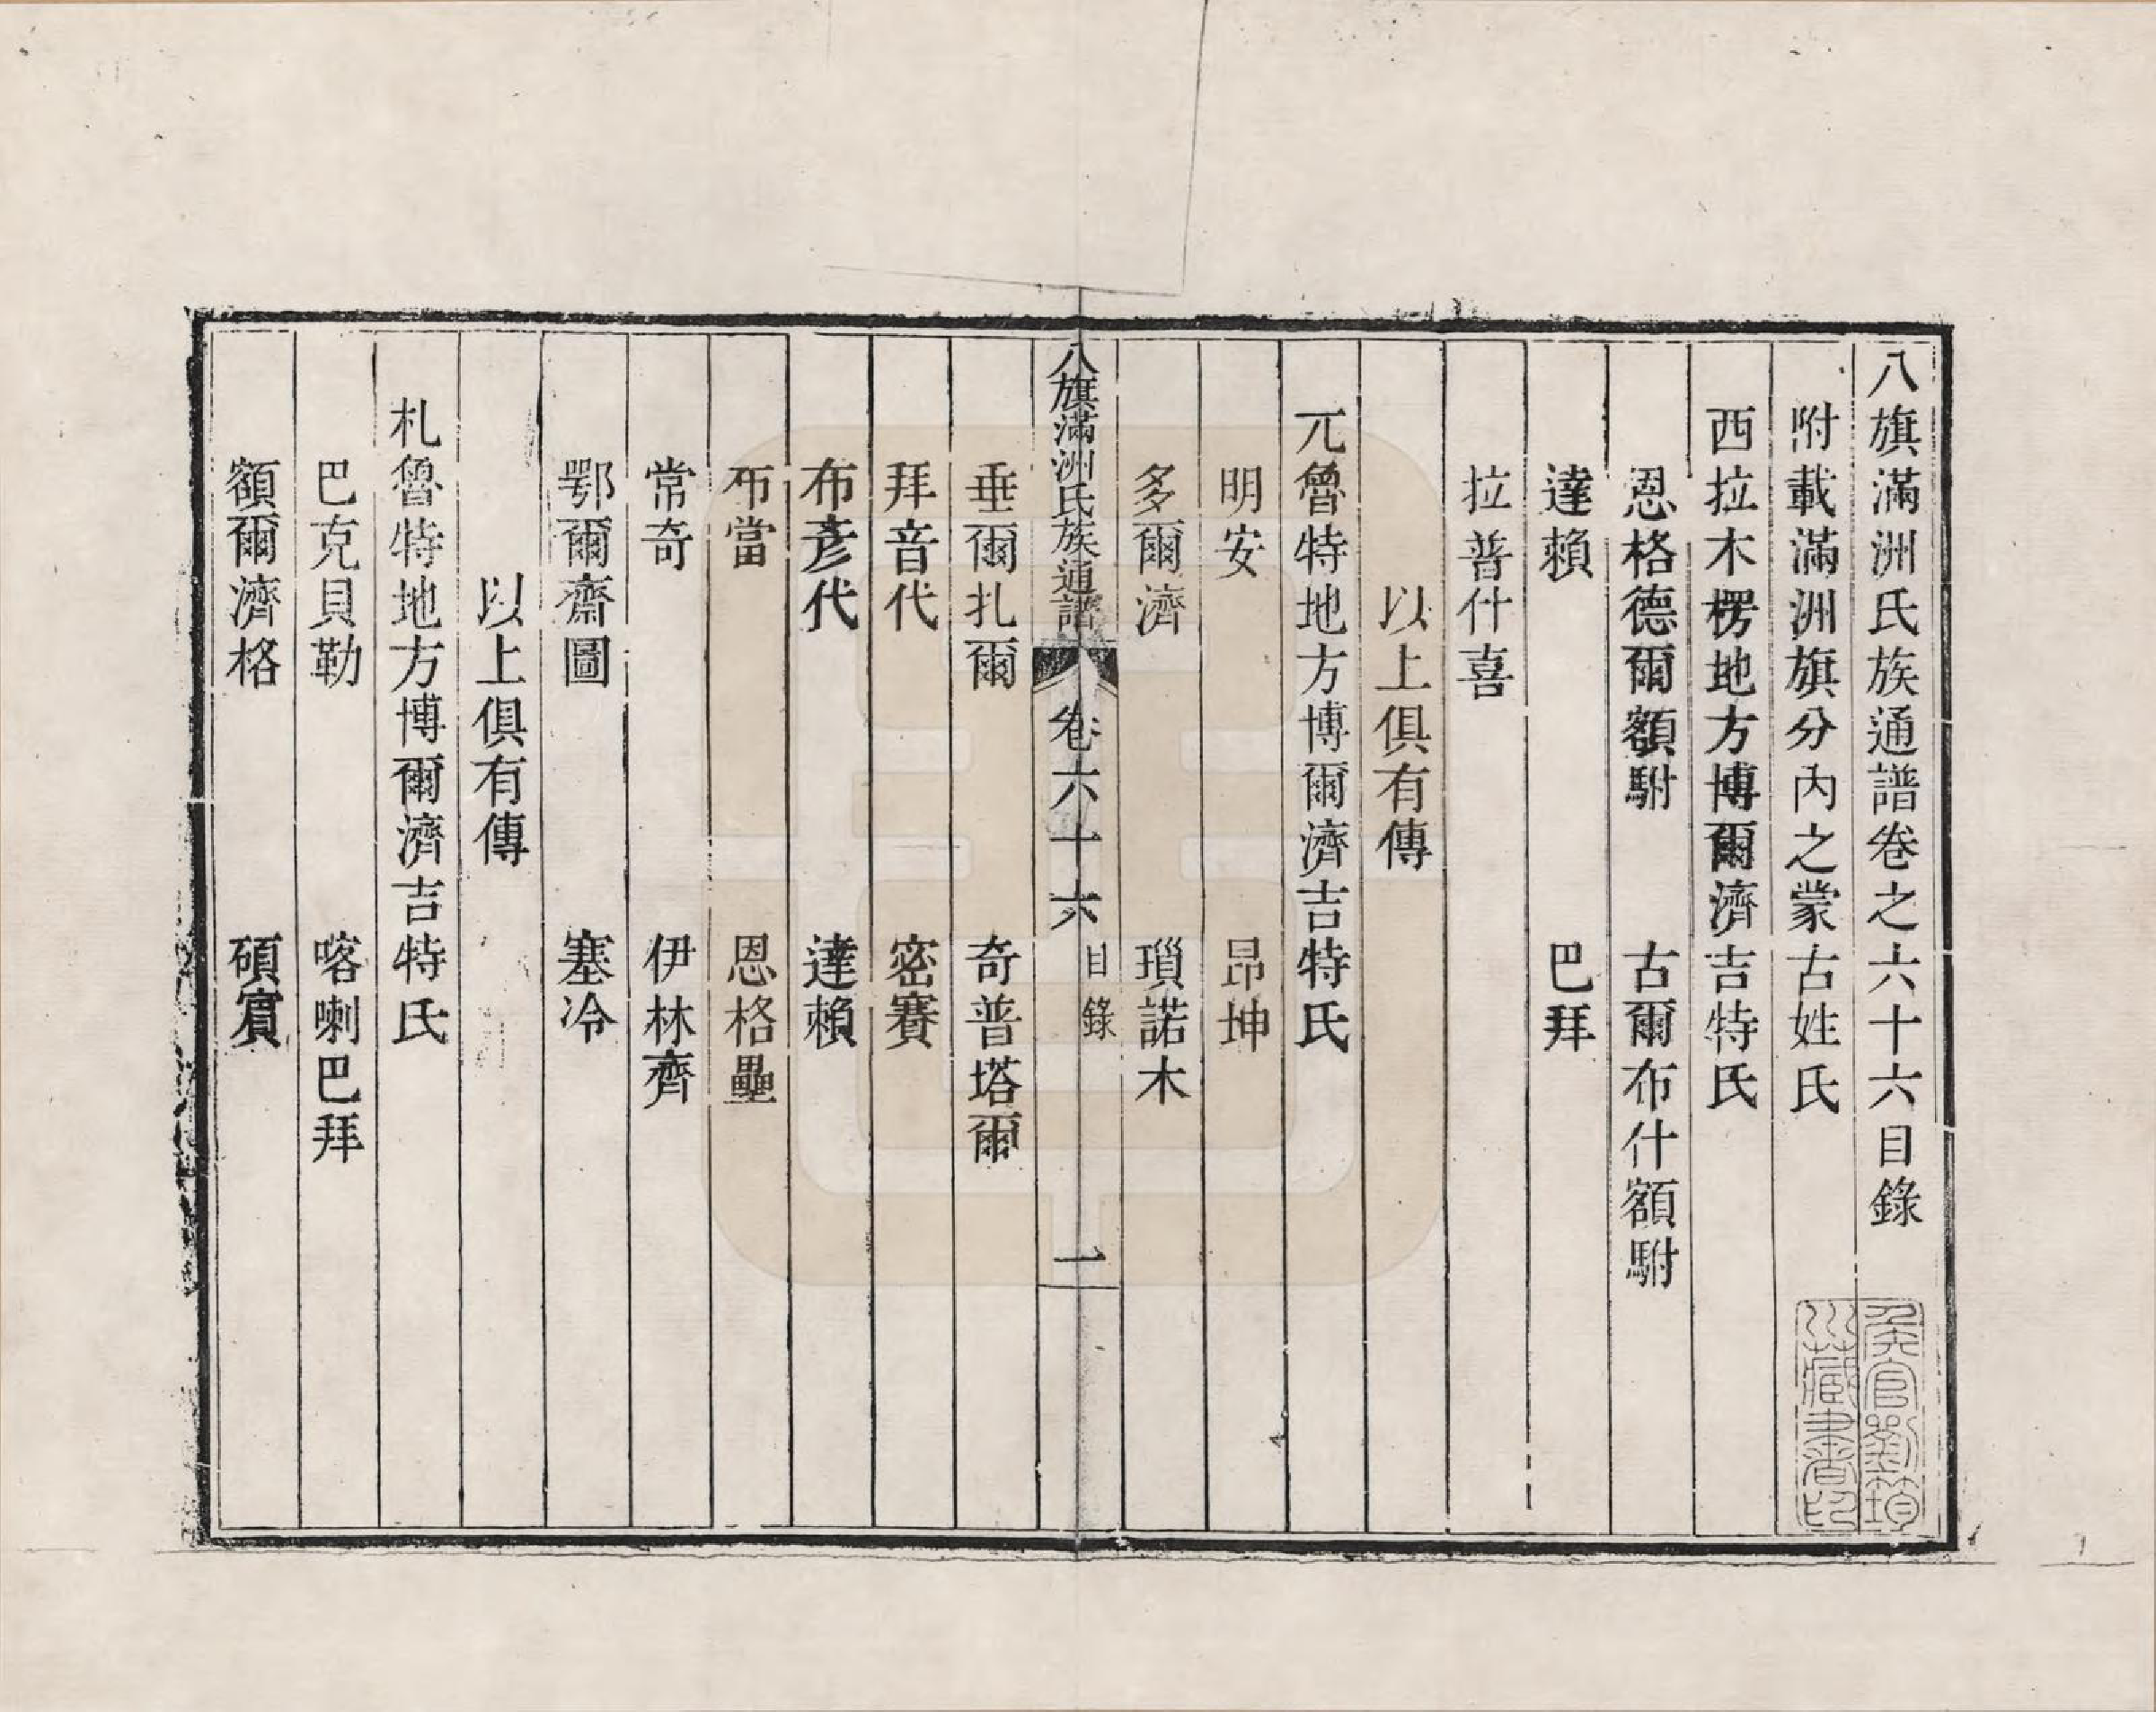 八旗滿洲氏族通譜卷之六十六目錄
附載滿洲旗分內之蒙古姓氏
西拉木楞地方博爾濟吉特氏
恩格德爾額駙　古爾布什額駙
達賴　巴拜
拉普什喜
以上俱有傳
兀魯特地方博爾濟吉特氏
明安　昂坤
多爾濟　瑣諾木
八旗滿洲氏族通譜　卷六十六　目錄　一
垂爾扎爾　奇普塔爾
拜音代　密賽
布彥代　達賴
布當　恩格壘
常奇　伊林齊
鄂爾齋圖　塞冷
以上俱有傳
札魯特地方博爾濟吉特氏
巴克貝勒　喀喇巴拜
額爾濟格　碩賓
侯官劉筠
川藏書印